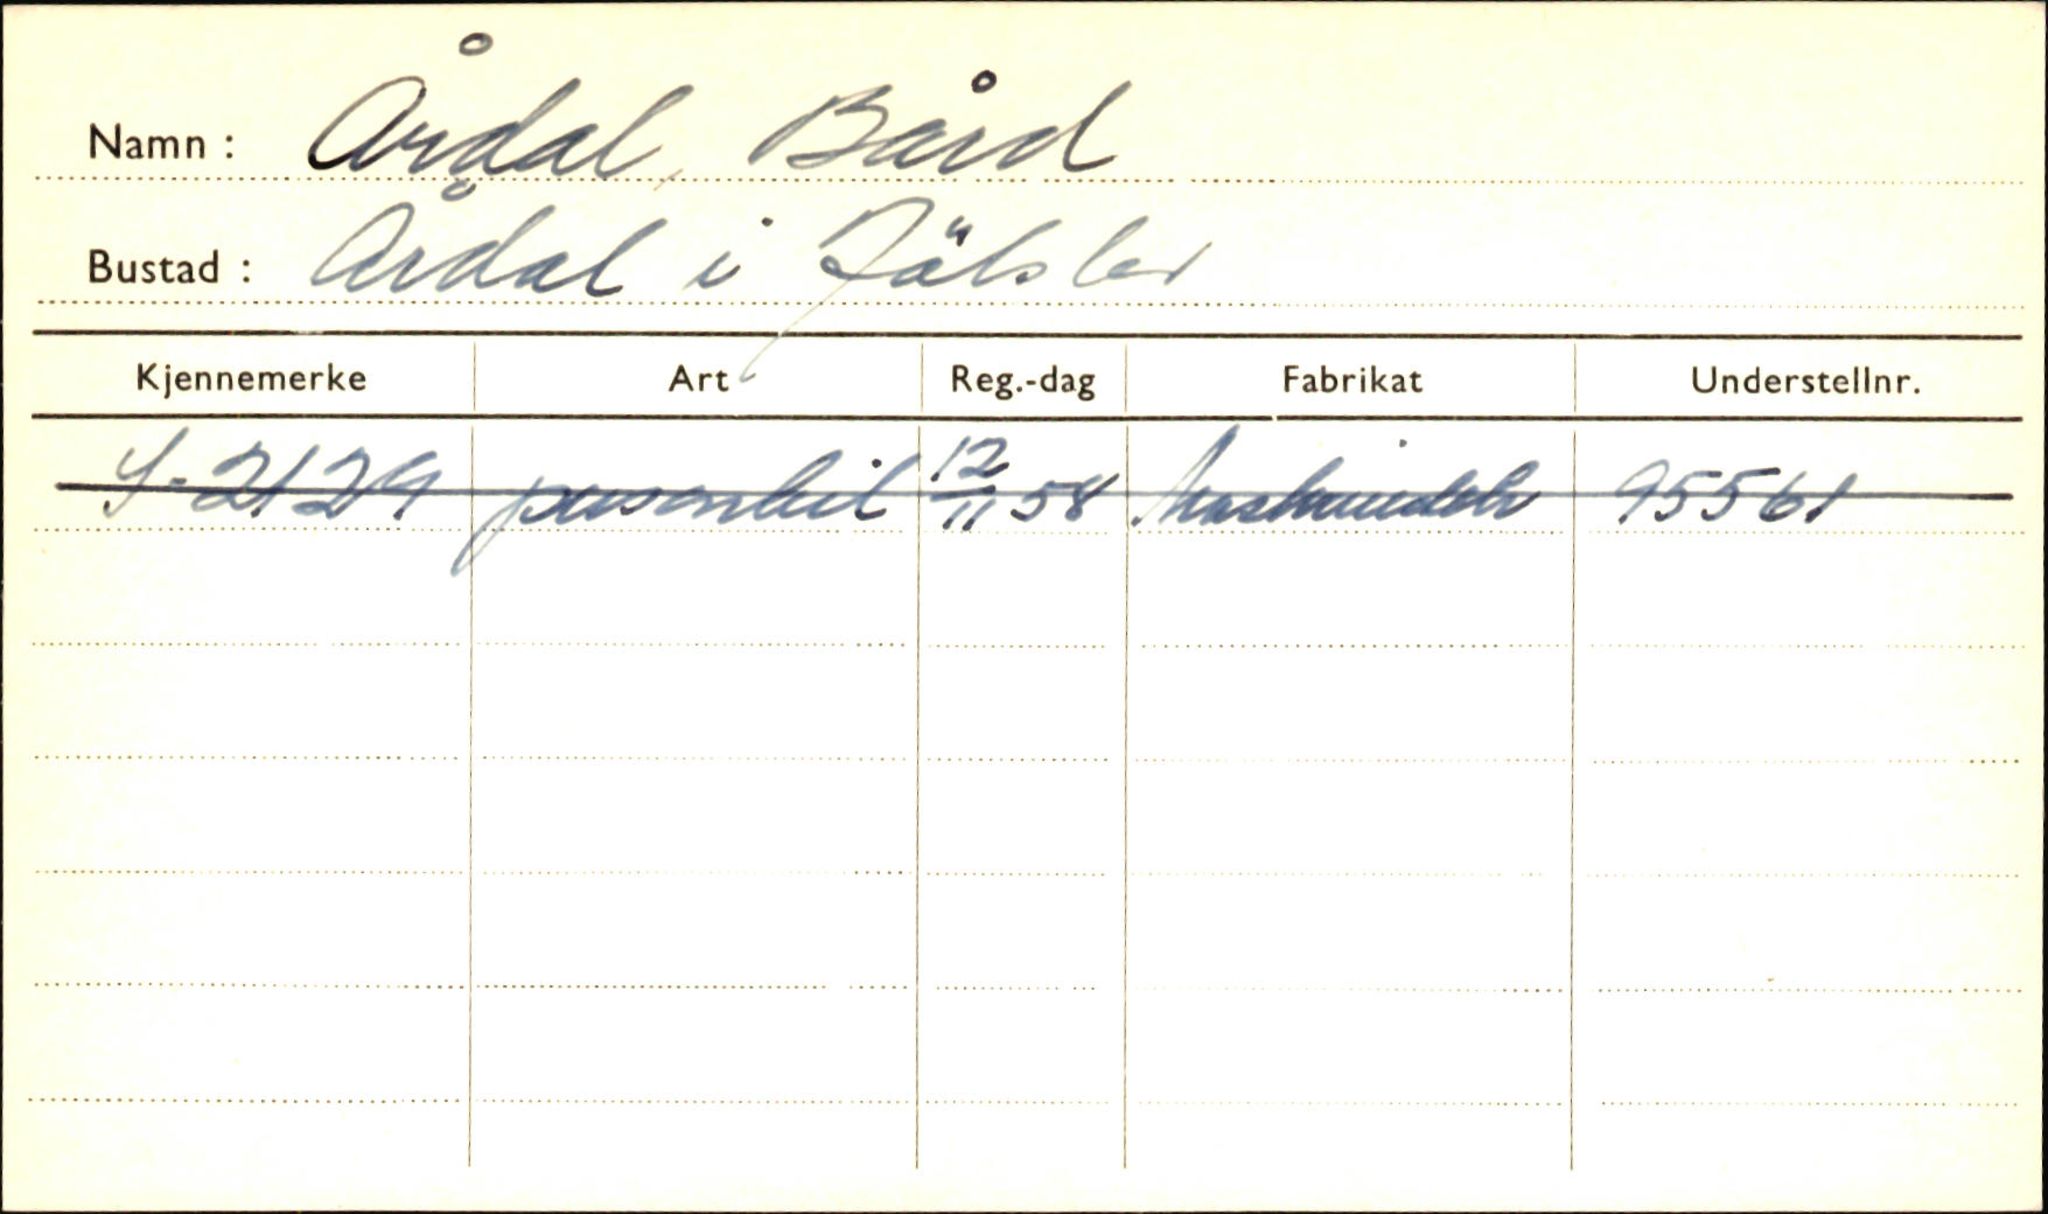 Namn : Årdal, Bård
Bustad : Årdal i Jölster
Kjennemerke Art Reg.-dag Fabrikat Understellnr.
S-2129 personbil 12/11 58 Moskvideh 95561